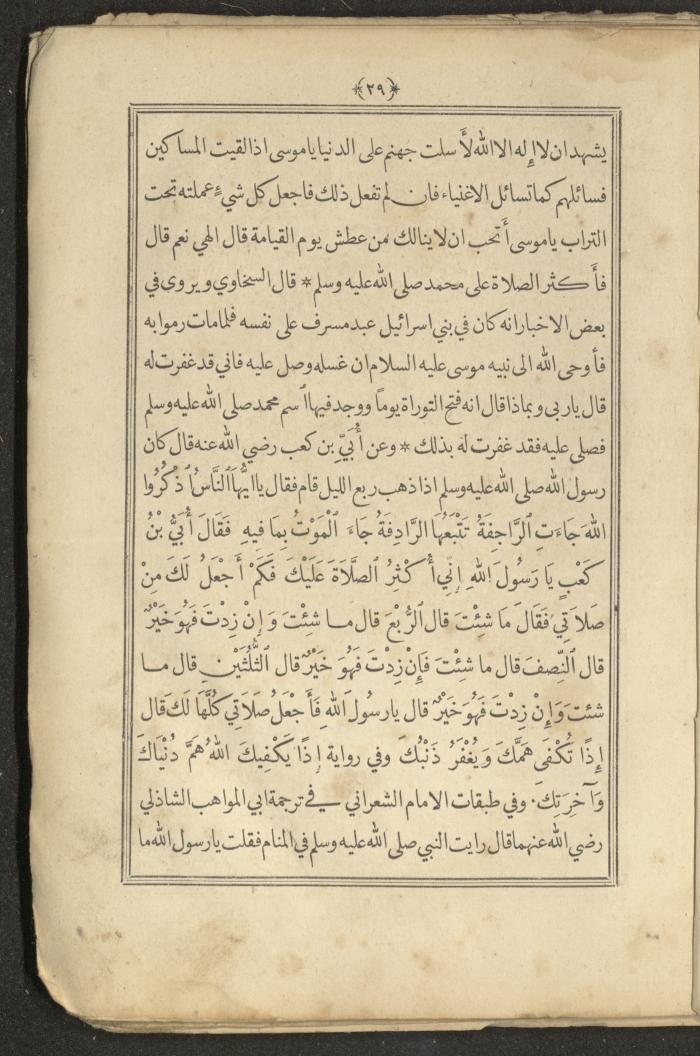 ﴿٢٩﴾
يشهد ان لا إله الا الله لأسلت جهنم على الدنيا ياموسى اذا لقيت المساكين
فسائلهم كما تسائل الاغنياء فان لم تفعل ذلك فاجعل كل شيءٍ عملته تحت
التراب ياموسى أتحب ان لا ينالك من عطش يوم القيامة قال الهي نعم قال
فأكثر الصلاة على محمد صلى الله عليه وسلم * قال السخاوي ويروى في
بعض الاخبار انه كان في بني اسرائيل عبد مسرف على نفسه فلما مات رموا به
فأوحى الله الى نبيه موسى عليه السلام ان غسله وصل عليه فاني قد غفرت له
قال يارب وبماذا قال انه فتح التوراة يوماً ووجد فيها ٱسم محمد صلى الله عليه وسلم
فصلى عليه فقد غفرت له بذلك * وعن أُبَيِّ بن كعب رضي الله عنه قال كان
رسول الله صلى الله عليه وسلم اذا ذهب ربع الليل قام فقال يا ايُّهَا ٱلنَّاسُ ٱذْكُرُوا
اللهَ جَاءَتِ ٱلرَّاجِفَةُ تَتْبَعُهَا الرَّادِفَةُ جَاءَ ٱلْمَوْتُ بِمَا فِيهِ فَقَالَ أُبَيُّ بْنُ
كَعْبٍ يَا رَسُولَ اللهِ إِنِّي أُكْثِرُ ٱلصَّلَاةَ عَلَيْكَ فَكَمْ أَجْعَلُ لَكَ مِنْ
صَلَاتِي فَقَالَ مَا شِئْتَ قَالَ ٱلرُّبْعَ قال ما شِئْتَ وَإِنْ زِدْتَ فَهُوَ خَيْرٌ
قال ٱلنِّصفَ قال ما شِئْتَ فَإِنْ زِدْتَ فَهُوَ خَيْرٌ قال ٱلثُّلُثَيْنِ قال ما
شئتَ وَإِنْ زِدْتَ فَهُوَ خَيْرٌ قال يارسُولَ ٱللهِ فَأَجْعَلُ صَلَاتِي كُلَّهَا لَكَ قال
إِذًا تُكْفَى هَمَّكَ وَيُغْفَرُ ذَنْبُكَ وفي رواية إِذًا يَكْفِيكَ اللهُ هَمَّ دُنْيَاكَ
وَآخِرَتِكَ. وفي طبقات الامام الشعراني في ترجمة ابي المواهب الشاذلي
رضي الله عنهما قال رايت النبي صلى الله عليه وسلم في المنام فقلت يارسول الله ما